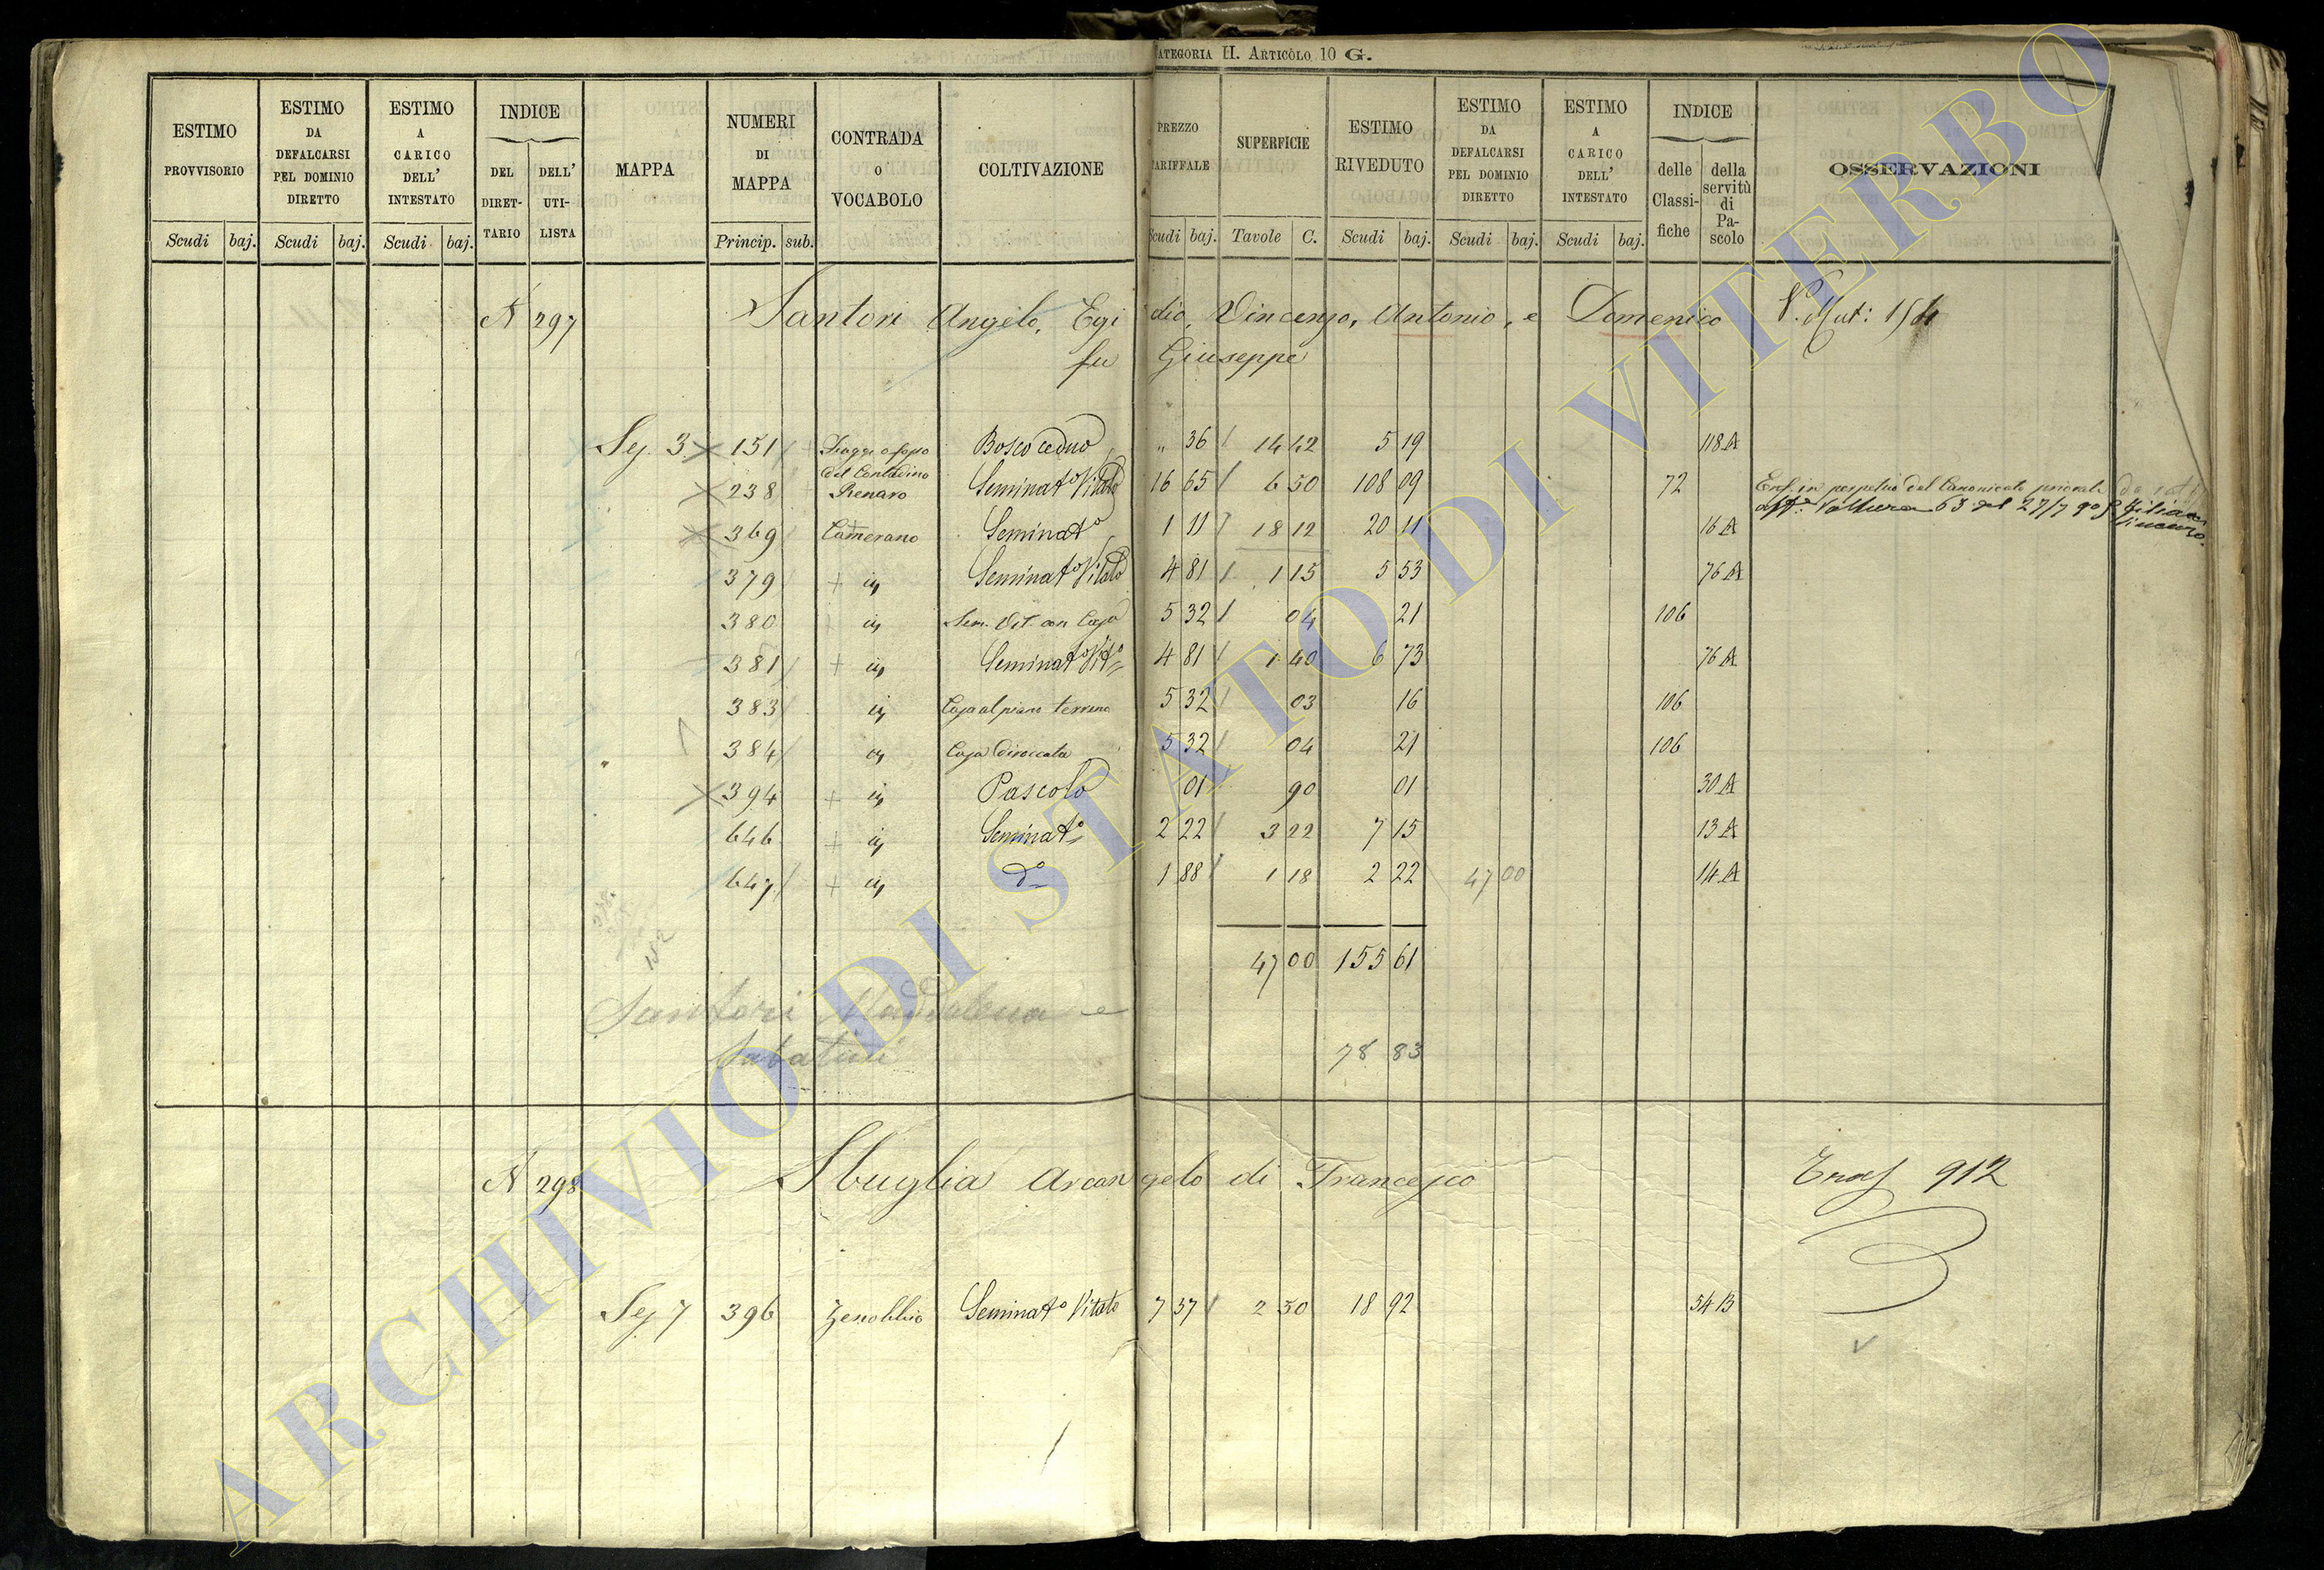 CATEGORIA II. ARTICOLO 10 G.
ESTIMO PROVVISORIO | ESTIMO DA DEFALCARSI PEL DOMINIO DIRETTO | ESTIMO A CARICO DELL' INTESTATO | INDICE | MAPPA | NUMERI DI MAPPA | CONTRADA O VOCABOLO | COLTIVAZIONE | PREZZO TARIFFALE | SUPERFICIE | ESTIMO RIVEDUTO | ESTIMO DA DEFALCARSI PEL DOMINIO DIRETTO | ESTIMO A CARICO DELL' INTESTATO | INDICE | OSSERVAZIONI
DEL DIRETTARIO | DELL' UTILISTA | delle Classifiche | della servitù di Pascolo
Scudi | baj. | Scudi | baj. | Scudi | baj. | Princip. | sub. | Scudi | baj. | Tavole | C. | Scudi | baj. | Scudi | baj. | Scudi | baj.
N 297 Santori Angelo, Egidio, Vincenzo, Antonio, e Domenico V. Mut: 154
fu Giuseppe
Sez. 3 151 del Contadino Bosco ceduo " 36 14 42 5 19 118 A
238 Renaro Seminato Vitato 16 65 6 50 108 09 72 Enf. in perpetuo del Canonicato priorale
369 Camerano Seminato 1 11 18 12 20 11 16 A
379 id Seminato Vitato 4 81 1 15 5 53 76 A
380 id Sem. Vit. con Casa 5 32 04 21 106
381 id Seminato Vito 4 81 1 40 6 73 76 A
383 id Casa al piano terreno 5 32 03 16 106
384 id Casa diroccata 5 32 04 21 106
394 id Pascolo 01 90 01 30 A
646 id Seminato 2 22 3 22 7 15 13 A
647 id do 1 88 1 18 2 22 47 00 14 A
152
47 00 155 61
Santori Maddalena e
Sabatini
78 83
N 298 Sbuglia Arcangelo di Francesco Trasf 912
Sez 7 396 Zenobbio Seminato Vitato 7 57 2 50 18 92 54 B
ARCHIVIO DI STATO DI VITERBO